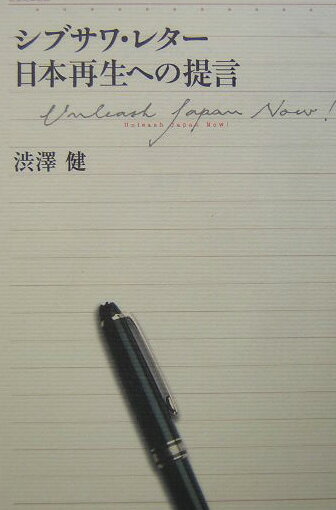 シブサワ・レター
日本再生への提言
Unleash Japan Now!
Unleash Japan Now!
渋澤 健